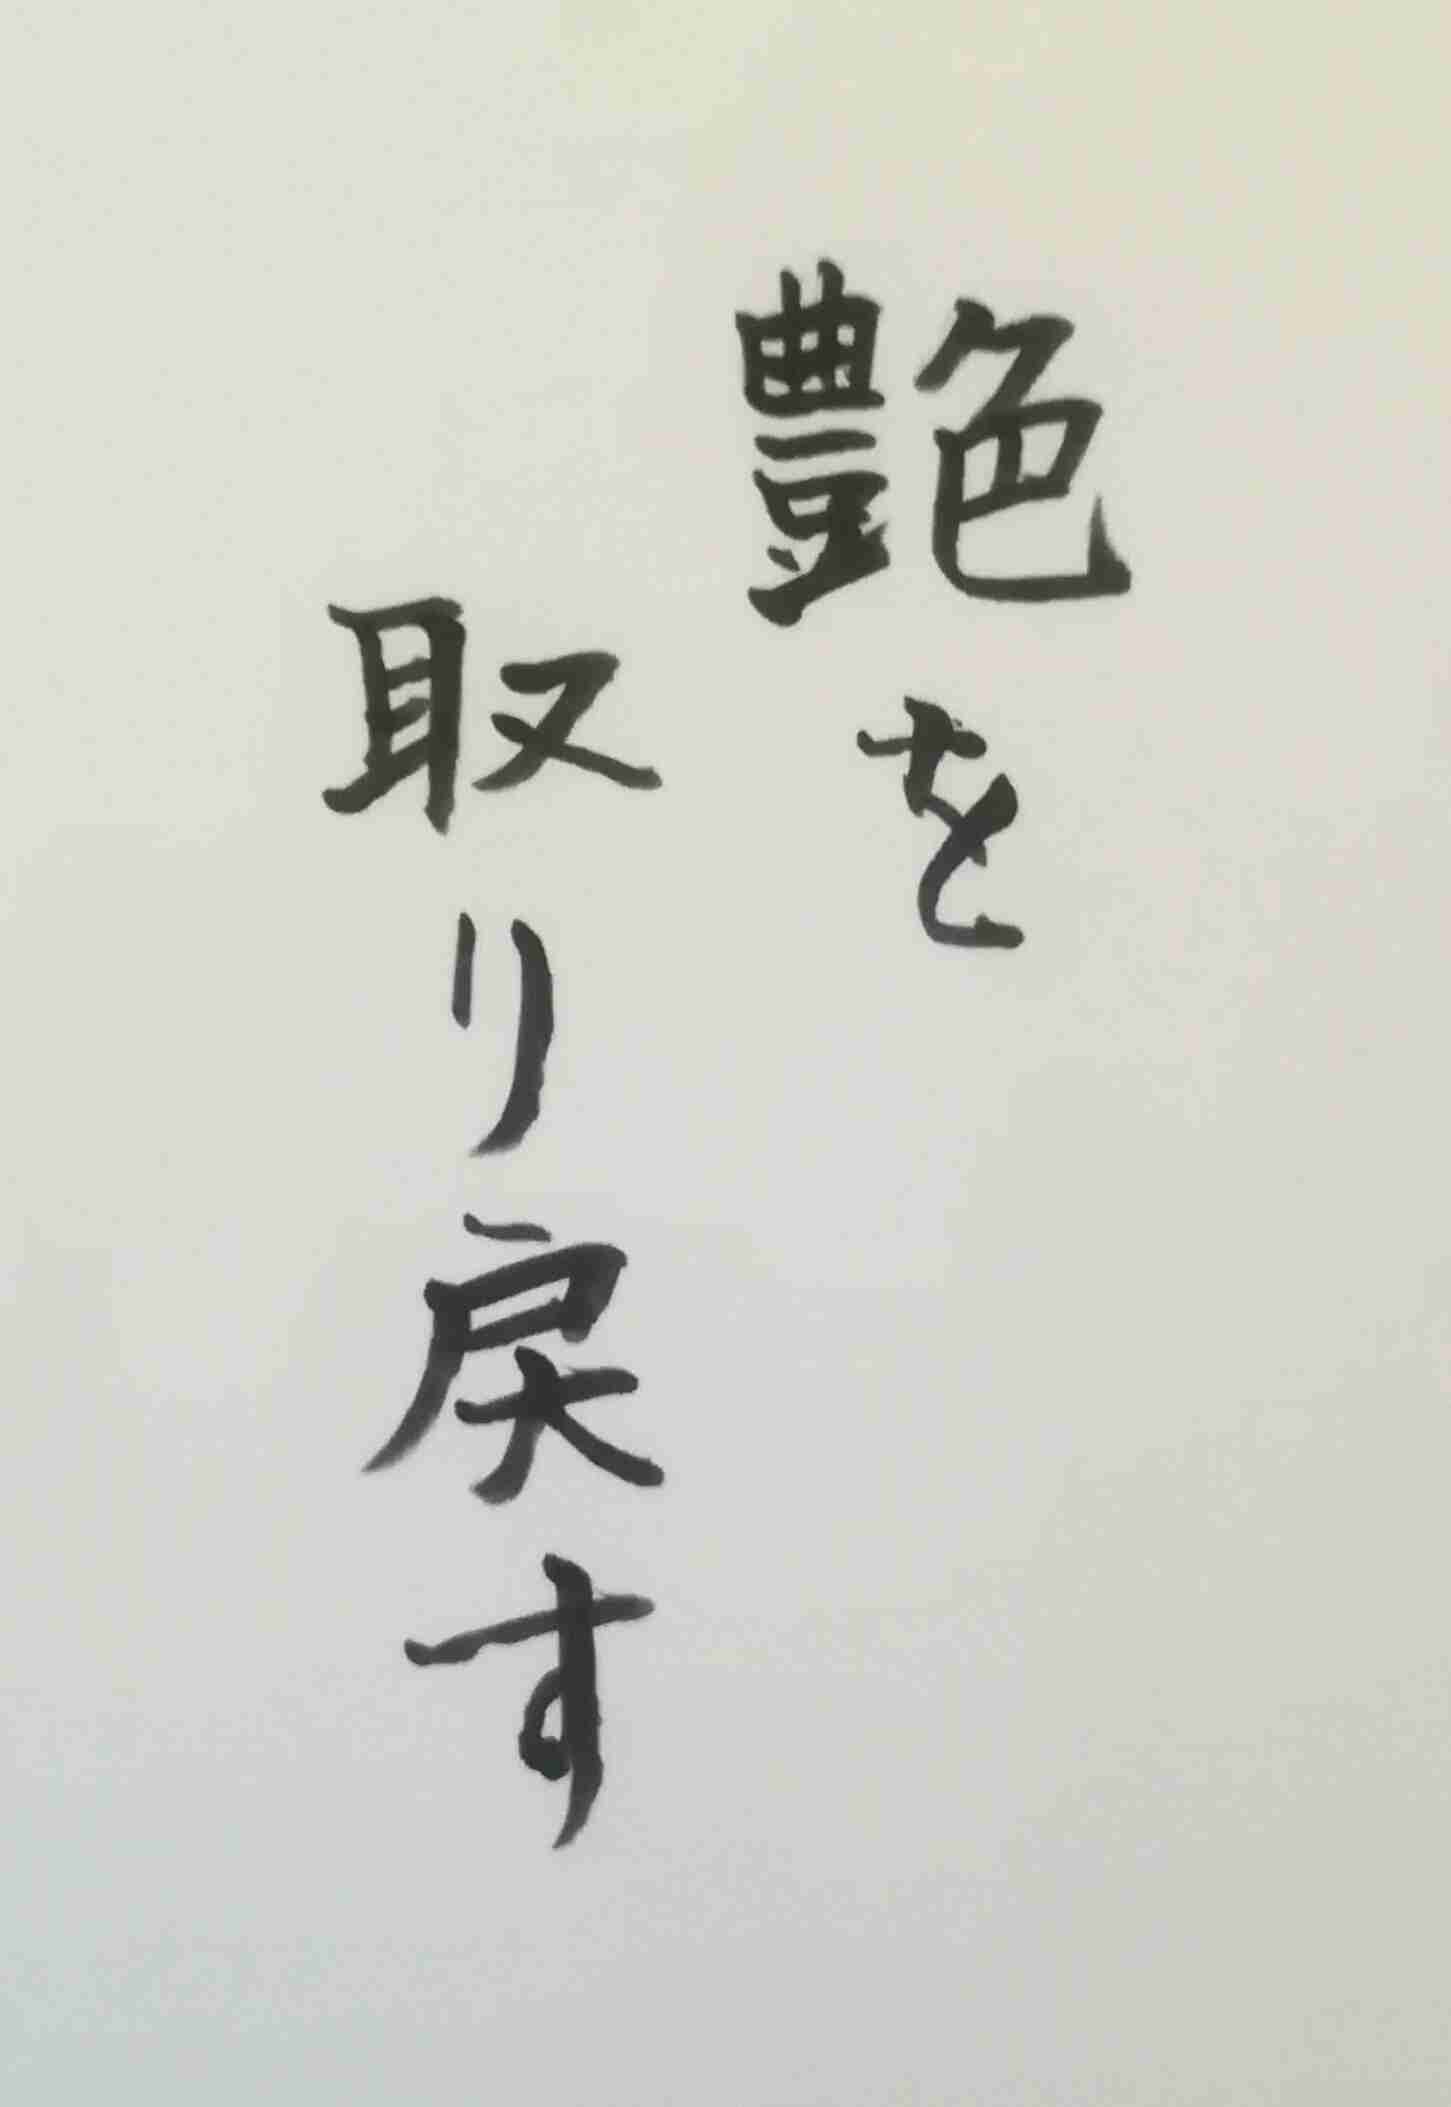 艶を
取り戻す